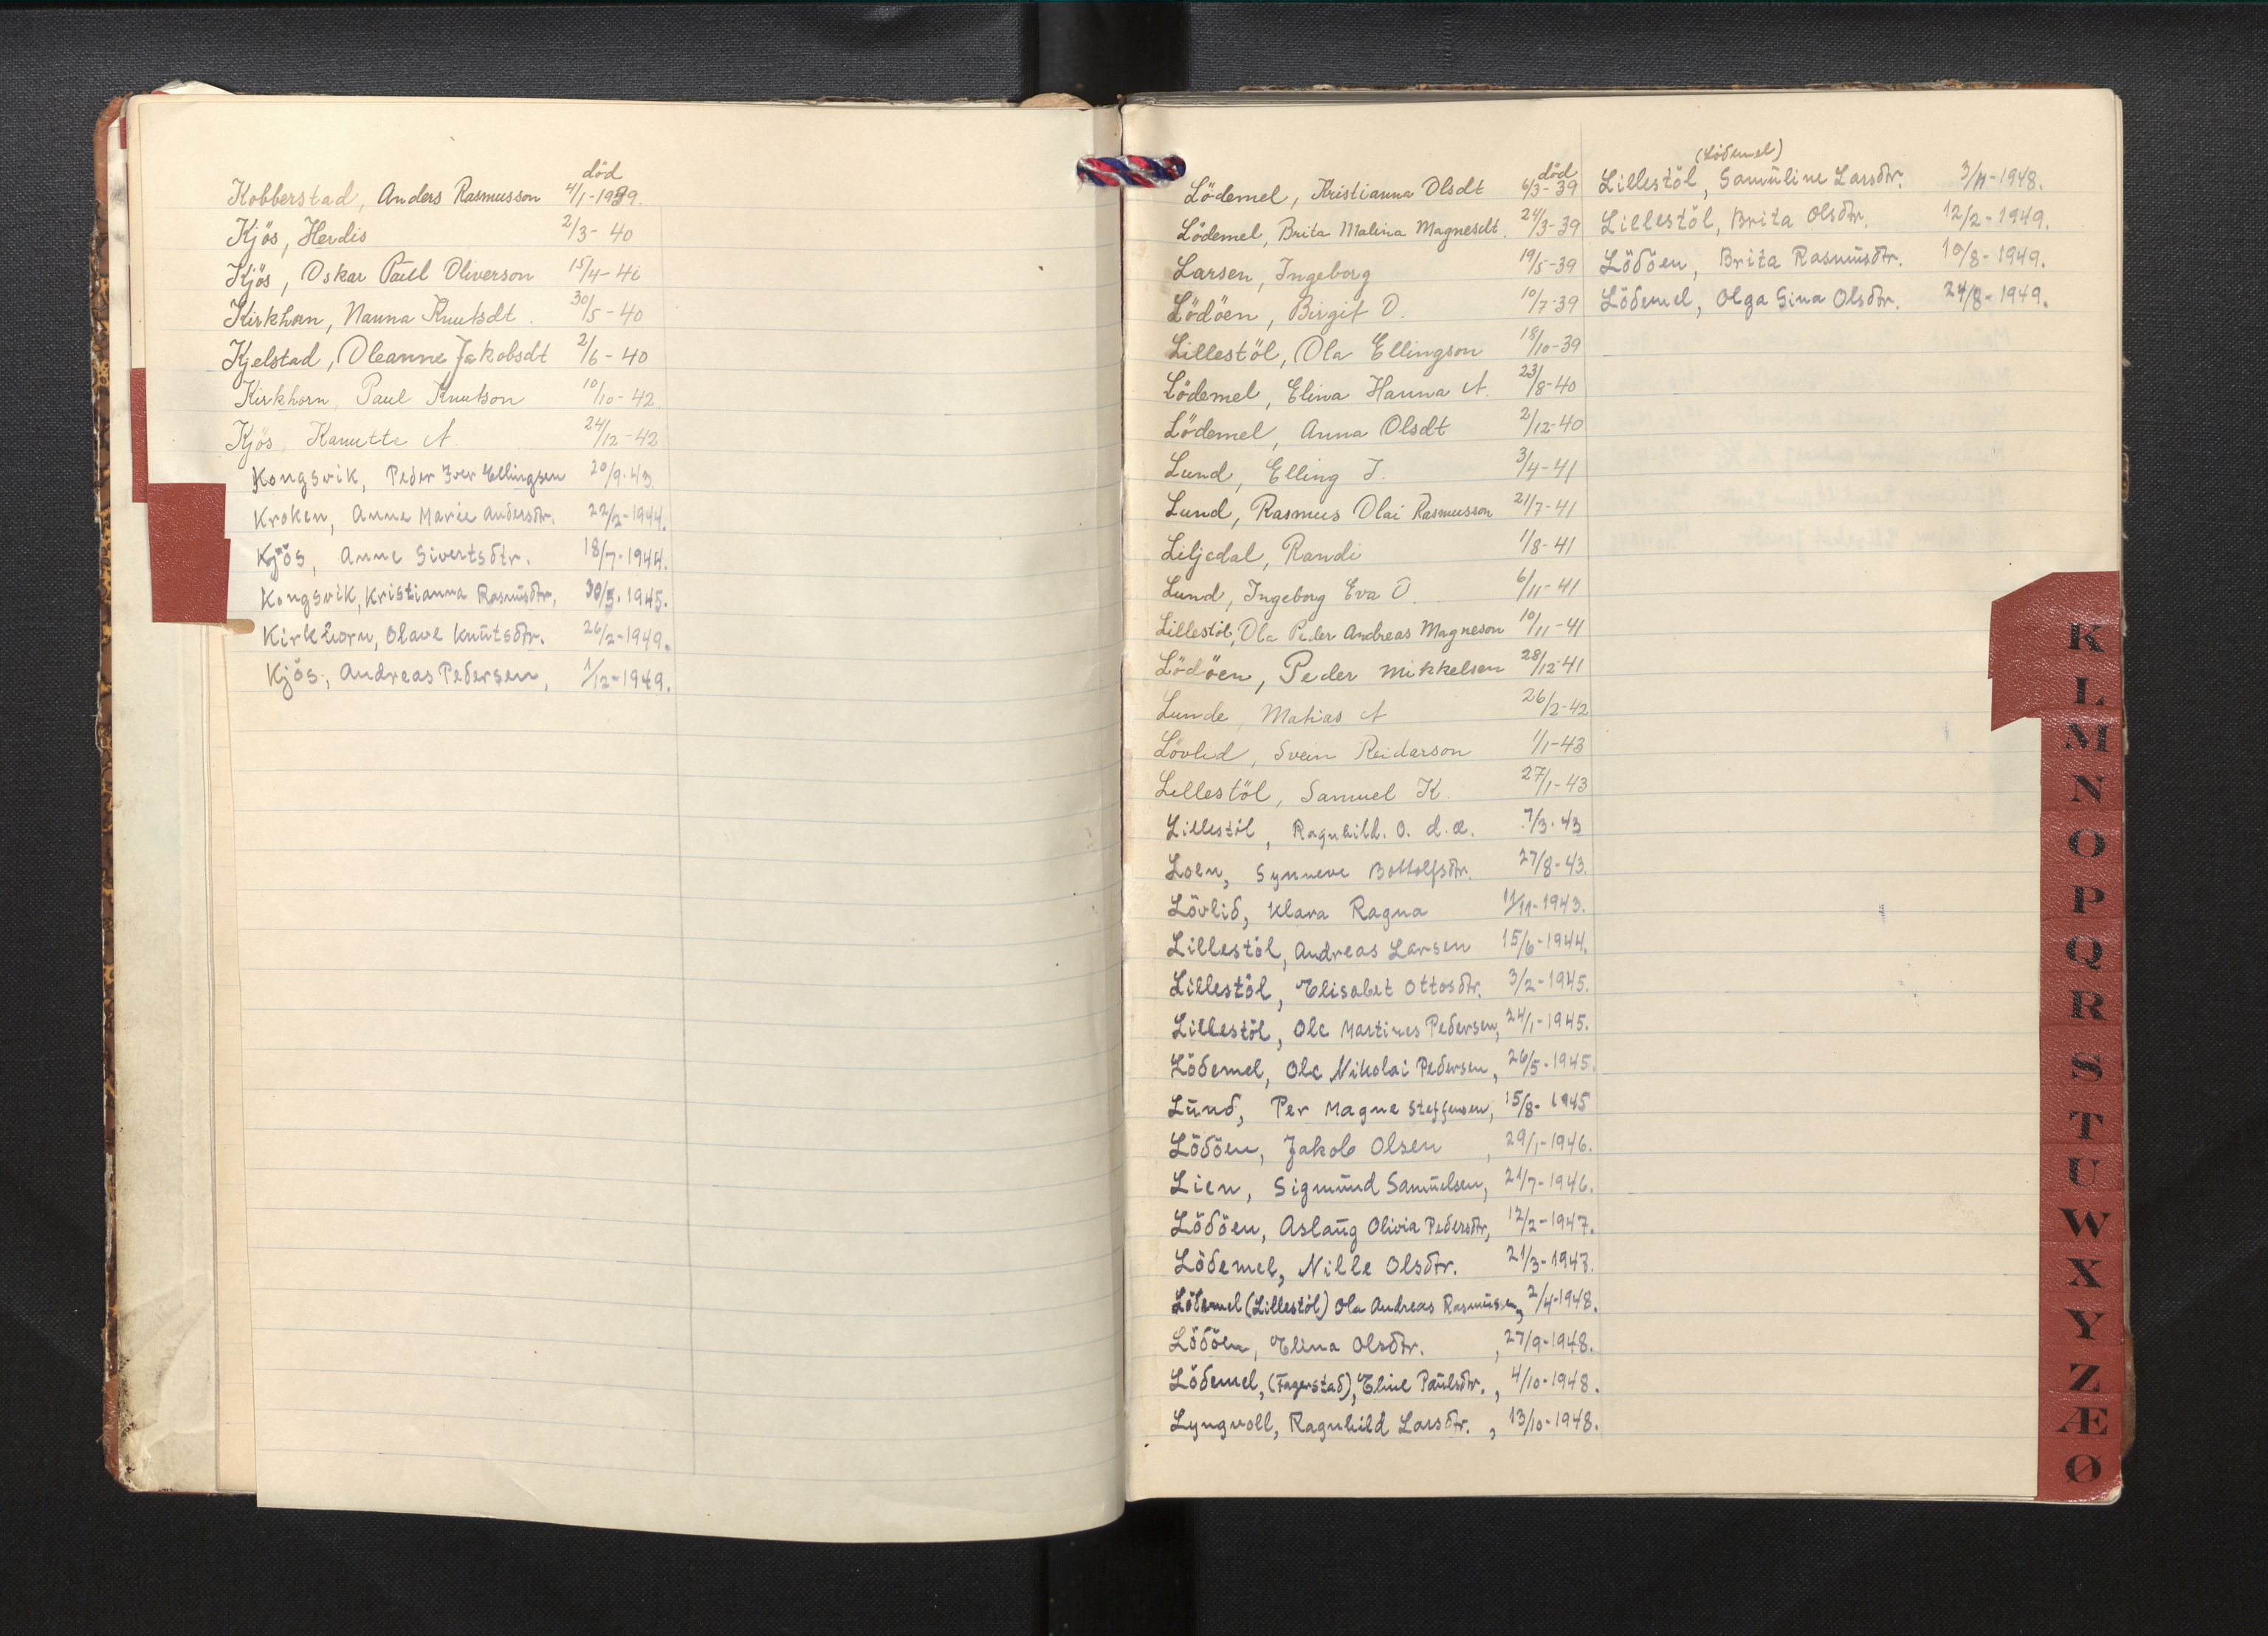 död
Kobberstad, Anders Rasmusson 4/1-1939.
Kjös, Herdis 2/3-40
Kjös, Oskar Paul Oliverson 15/4-40
Kirkhorn, Nanna Knutsdt. 30/5-40
Kjelstad, Oleanne Jakobsdt 2/6-40
Kirkhorn, Paul Knutson 10/10-42
Kjös, Kanutte A. 24/12-42
Kongsvik, Peder Iver Ellingsen 20/9-43.
Kroken, Anne Marie Andersdtr. 22/2-1944.
Kjös, Anne Sivertsdtr. 18/7-1944.
Kongsvik, Kristianna Rasmusdtr, 30/3-1945.
Kirkhorn, Olave Knutsdtr. 26/2-1949.
Kjös, Andreas Pedersen, 1/12-1949.
död
Lödemel, Kristianna Olsdt 6/3-39
Lödemel, Brita Malina Magnesdt. 24/3-39
Larsen, Ingeborg 19/5-39
Lödöen, Birgit O. 10/7-39
Lillestöl, Ola Ellingson 18/10-39
Lödemel, Elina Hanna A. 23/8-40
Lödemel, Anna Olsdt 2/12-40
Lund, Elling J. 3/4-41
Lund, Rasmus Olai Rasmusson 21/7-41
Liljedal, Randi 1/8-41
Lund, Ingeborg Eva O. 6/11-41
Lillestöl, Ola Peder Andreas Magneson 10/11-41
Lödöen, Peder Mikkelsen 28/12-41
Lunde, Matias A 26/2-42
Lövlid, Svein Reidarson 1/1-43
Lillestöl, Samuel K. 27/1-43
Lillestöl, Ragnhild. O. d.æ. 7/3-43
Loen, Synneve Bottolfsdtr. 27/8-43.
Lövlid, Klara Ragna 11/11-1943.
Lillestöl, Andreas Larsen 15/6-1944.
Lillestöl, Elisabet Ottosdtr. 3/2-1945.
Lillestöl, Ole Martines Pedersen, 24/1-1945.
Lödemel, Ole Nikolai Pedersen, 26/5-1945.
Lund, Per Magne Steffensen, 15/8-1945
Lödöen, Jakob Olsen, 29/1-1946.
Lien, Sigmund Samuelsen, 21/7-1946.
Lödöen, Aslaug Olivia Pedersdtr, 12/2-1947.
Lödemel, Nille Olsdtr. 21/3-1947.
Lödemel (Lillestöl) Ola Andreas Rasmussen, 2/4-1948.
Lödöen, Elina Olsdtr. , 27/9-1948.
Lödemel, (Fagerstad), Eline Paulsdtr. , 4/10-1948.
Lyngvoll, Ragnhild Larsdtr. , 13/10-1948.
(Lödemel)
Lillestöl, Samuline Larsdtr. 3/11-1948.
Lillestöl, Brita Olsdtr. 12/2-1949.
Lödöen, Brita Rasmusdtr. 10/8-1949.
Lödemel, Olga Sina Olsdtr. 24/8-1949.
K
L
M
N
O
P
Q
R
S
T
U
W
X
Y
Z
Æ
Ø